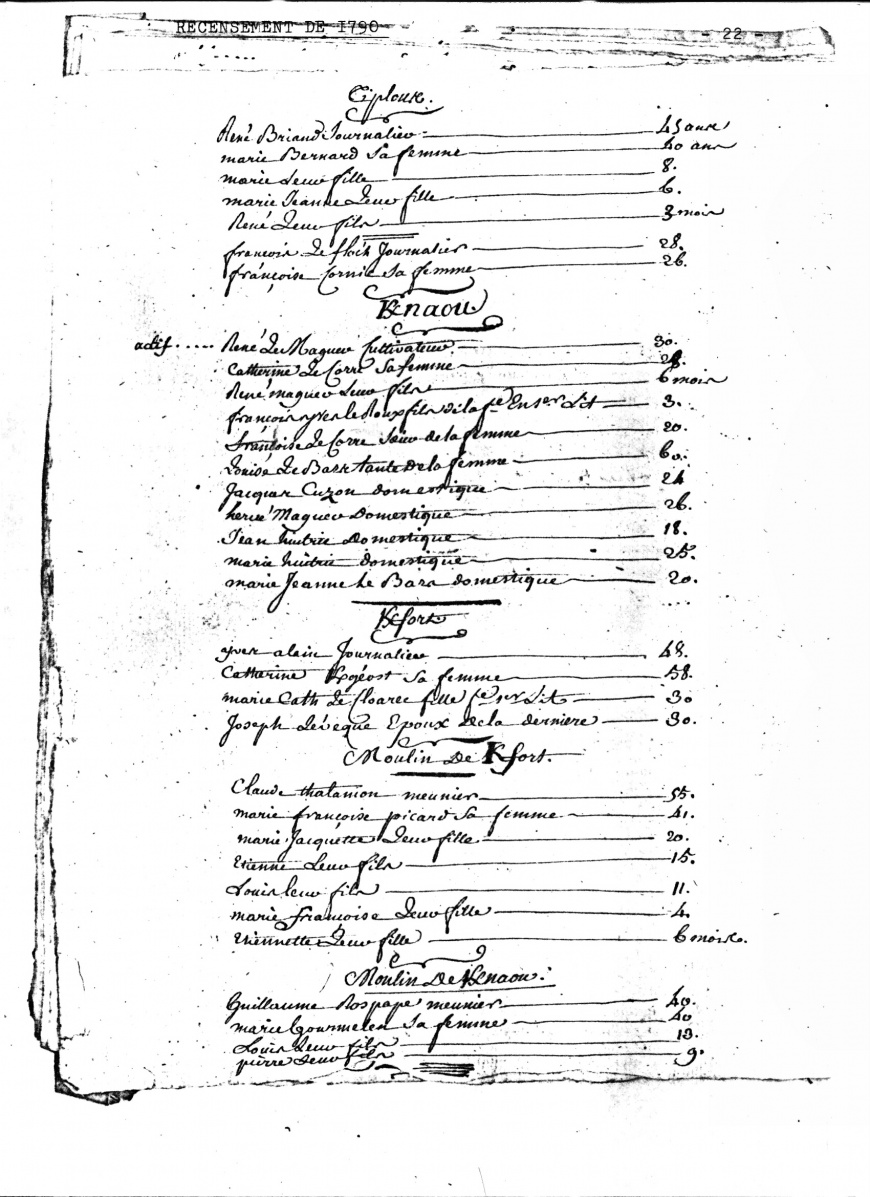 RECENSEMENT DE 1790 - 22 -
René Briand Journalier 45 ans
marie Bernard Sa femme 40 ans
marie Leur fille 8.
marie Jeanne Leur fille 6.
René Leur fils 3 mois
françois Le floch Journalier 28.
françoise Cornic Sa femme 26.
Knaou
actif ..... René Le Maguer Cultivateur 30.
Catherine Le Corre Sa femme
René maguer Leur fils 6 mois
françois yves le Roux fils de la fe En 1er Lit 3.
françoise Le Corre Sœur de la femme 20.
Louise Le Bars tante de la femme 60.
Jacques Cuzon domestique 24
hervé Maguer Domestique 26.
Jean domestique 18.
marie domestique 25.
marie Jeanne le Bars domestique 20.
Kfort
yves alain Journalier 48.
Catharine Sa femme 58.
marie Cath Le floarec fille fe 1er Lit 30
Joseph Levêque Epoux de la derniere 30.
Moulin De Kfort.
Claude thalamon meunier 55.
marie françoise picard Sa femme 41.
marie Jacquette Leur fille 20.
Etienne Leur fils 15.
Louis leur fils 11.
marie françoise Leur fille 4.
Etiennette Leur fille 6 mois
Moulin De Knaou.
Guillaume Rospape meunier 40.
marie Gourmelen Sa femme 40
Louis Leur fils 13.
pierre Leur fils 9.